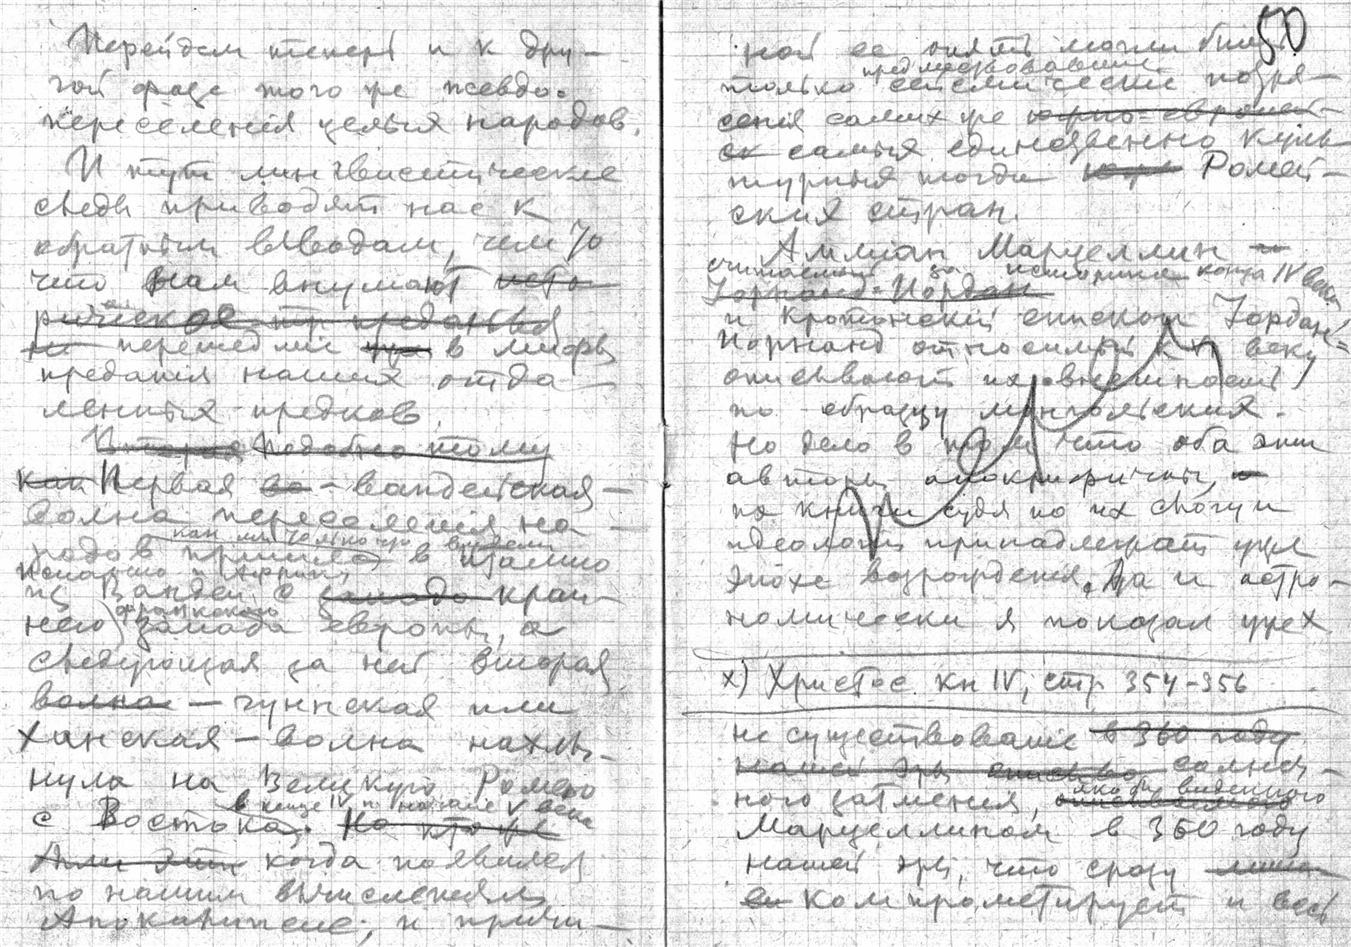 Перейдем теперь и к дру-
гой фазе того же псевдо-
переселения целых народов.
И тут лингвистические
следы приводят нас к
обратным выводам, чем то
что нам внушают исто-
рическое предания
перешедшие в
предания наших отда-
ленных предков
Подобно тому
как Первая - вандейская -
волна переселения на-
родов пришла в Италию
как мы только что видели
Испанию и Африку,
из Вандеи с запада край-
него французского запада Европы, а
следующая за ней вторая
волна - гуннская или
ханская - волна нахлы-
нула на Великую Ромею
с Востока,
в конце IV и начале V века
когда появился
по нашим вычислениям
Апокалипсис, и причи-
50
ной ее опять могли быть
только сейсмические потря-
сения самих же
самых единственно куль-
турных тогда Ромей-
ских стран.
Аммиан Марцеллин
считаемый за историка конца IV века
Иорнанд-Иордан
и Кротонский епископ Иордан-
Иорнанд относимый к VI веку
описывают их внешность
по образцу монгольских.
Но дело в том что оба эти
авторы апокрифичны,
их книги судя по их слогу и
идеологии принадлежат уже
эпохе возрождения, да и астро-
номически я показал уже х
х) Христос кн IV, стр 354-356
не существование в 360 году
нашей эры солнеч-
ного затмения, якобы виденного
Марцеллином в 360 году
нашей эры, что сразу
компрометирует и весь